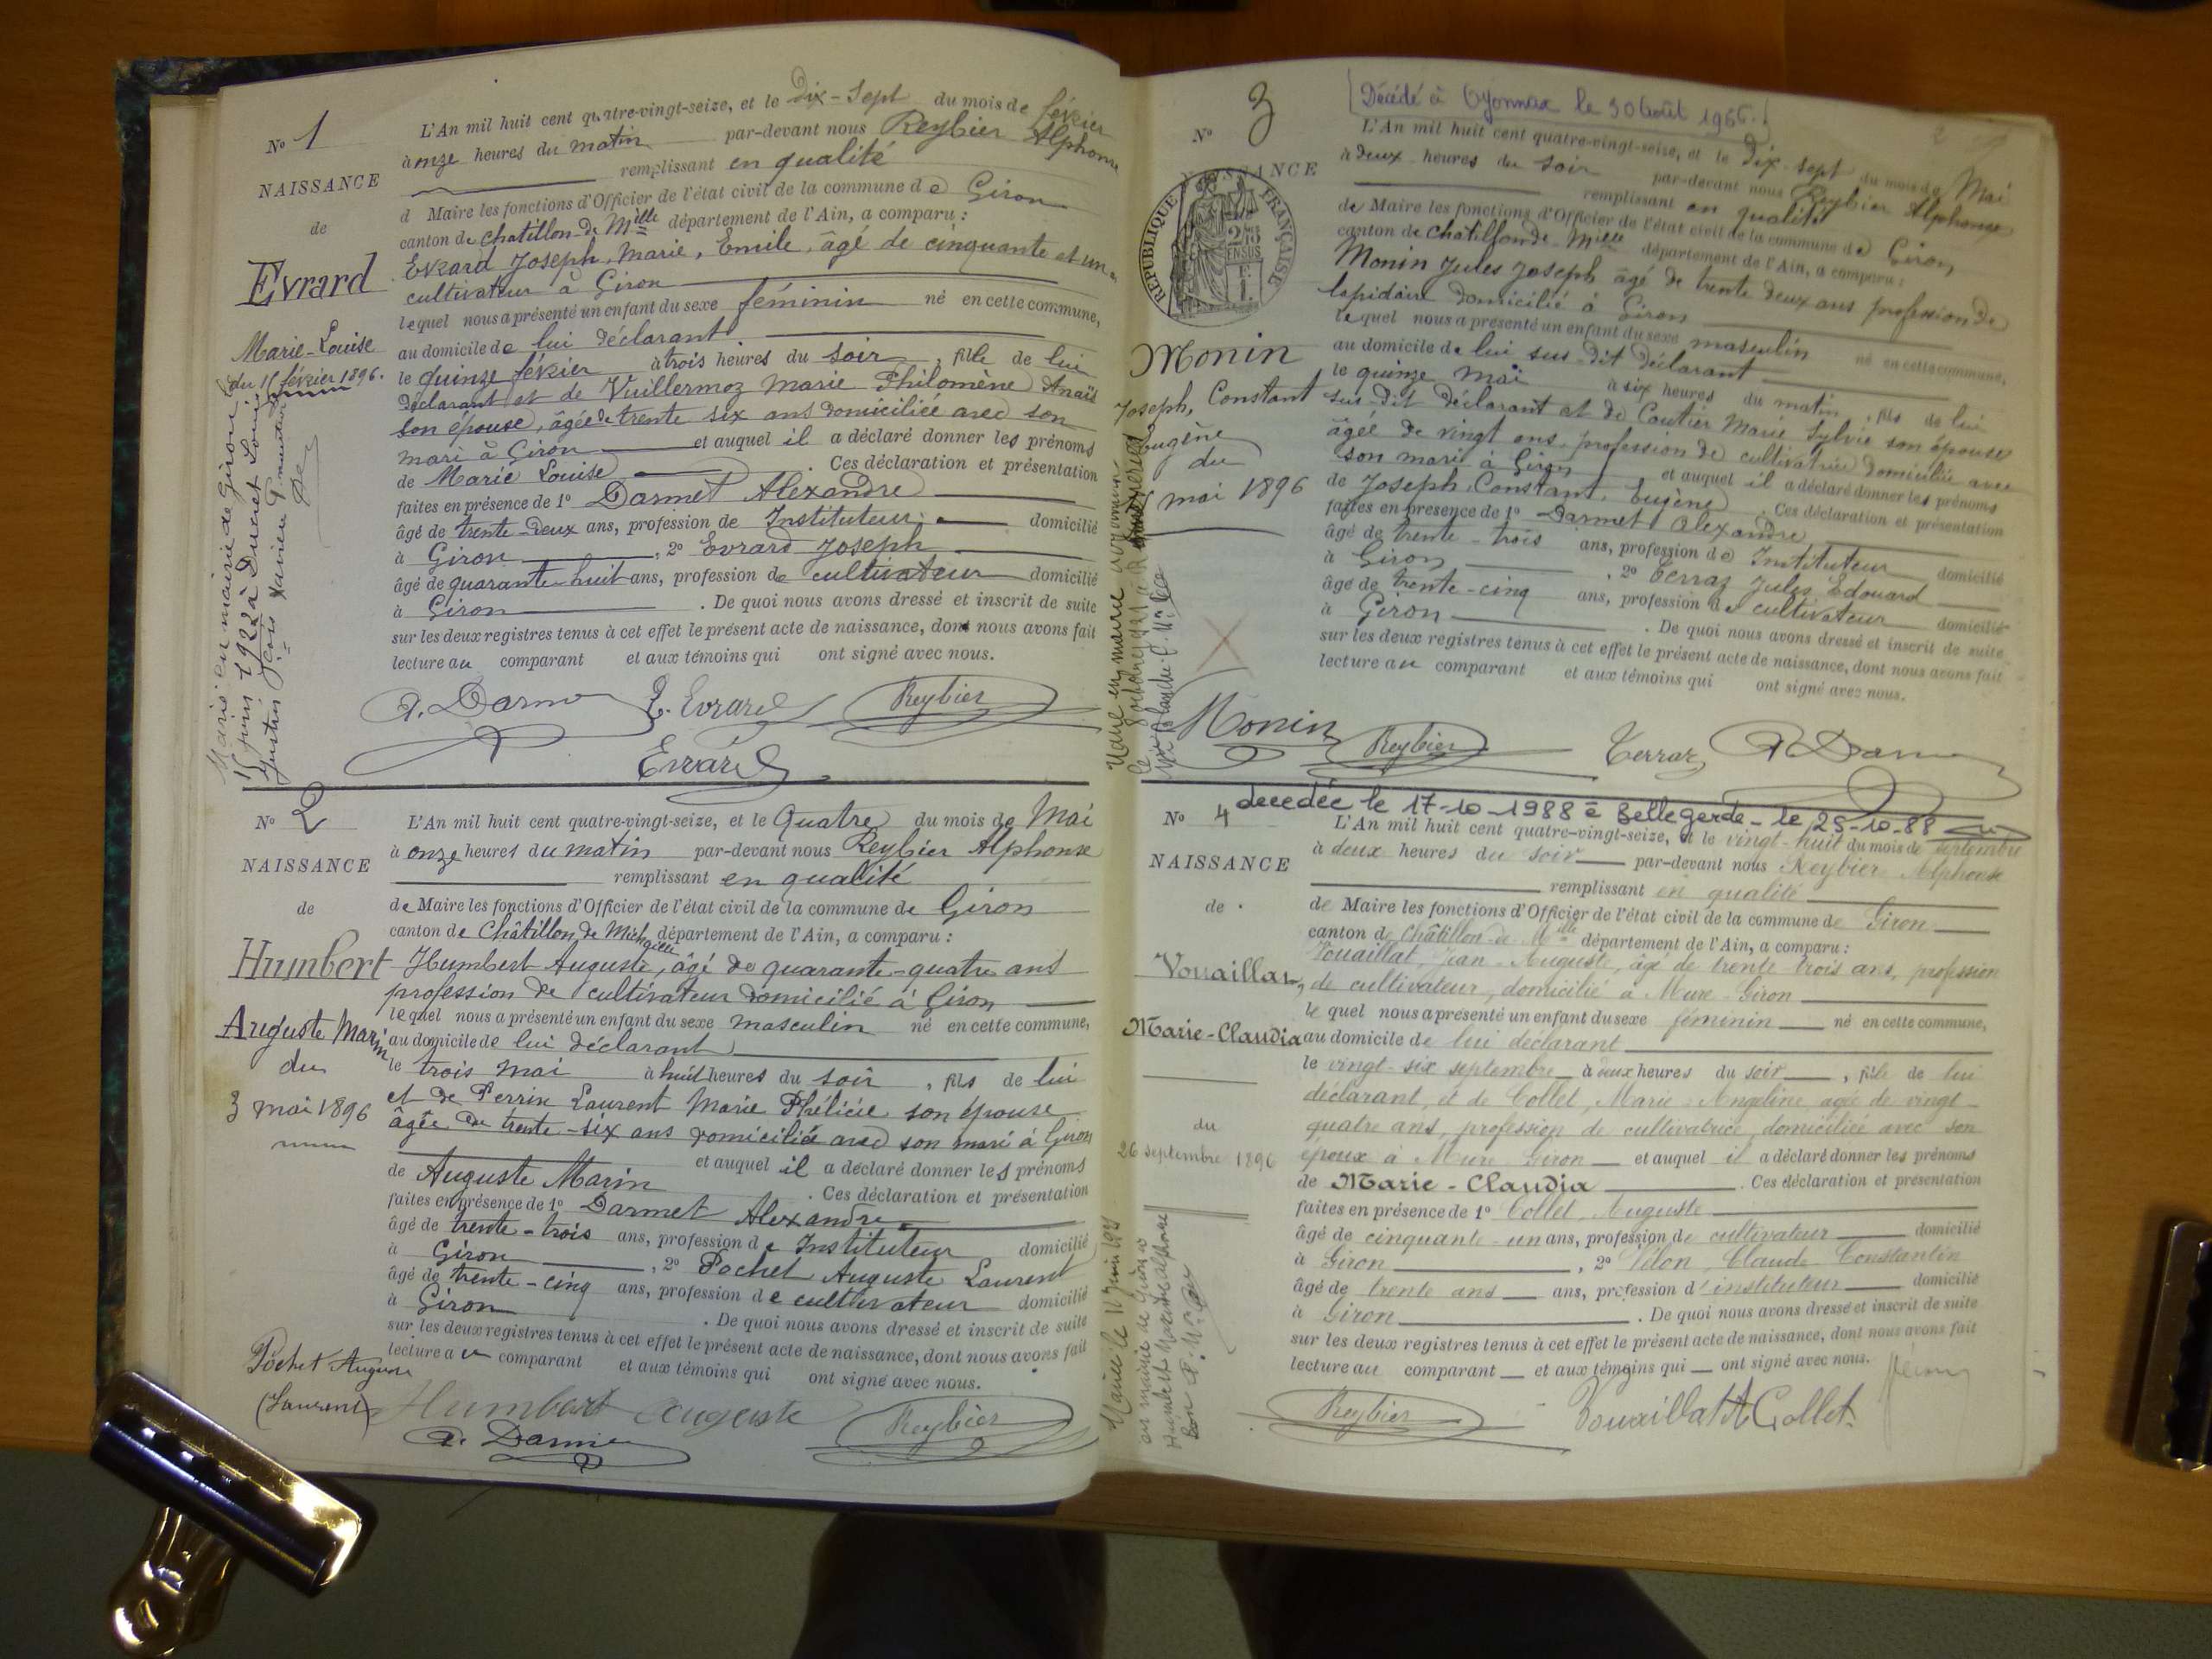 No 1
NAISSANCE
de
Evrard
Marie-Louise
du 15 février 1896.
L'An mil huit cent quatre-vingt-seize, et le Dix-Sept du mois de février
à onze heures du matin par-devant nous Reybier Alphonse
remplissant en qualité
d Maire les fonctions d'Officier de l'état civil de la commune de Giron
canton de Chatillon-de-Mille département de l'Ain, a comparu :
Evrard Joseph, Marie, Emile, âgé de cinquante et un
cultivateur à Giron
lequel nous a présenté un enfant du sexe féminin né en cette commune,
au domicile de lui déclarant
le quinze février à trois heures du soir, fille de lui
déclarant et de Vuillermoz Marie Philomène Anaïs
son épouse, âgée de trente six ans domiciliée avec son
mari à Giron et auquel il a déclaré donner les prénoms
de Marie Louise. Ces déclaration et présentation
faites en présence de 1o Darmet Alexandre
âgé de trente-deux ans, profession de Instituteur domicilié
à Giron, 2o Evrard Joseph
âgé de quarante-huit ans, profession de cultivateur domicilié
à Giron. De quoi nous avons dressé et inscrit de suite
sur les deux registres tenus à cet effet le présent acte de naissance, dont nous avons fait
lecture au comparant et aux témoins qui ont signé avec nous.
A. Darmet E. Evrard Reybier
Evrard
Marié en mairie de Giron le
15 juin 1922 à Ducret Louis
No 2
NAISSANCE
de
Humbert
Auguste Marin
du
3 mai 1896
L'An mil huit cent quatre-vingt-seize, et le Quatre du mois de Mai
à onze heures du matin par-devant nous Reybier Alphonse
remplissant en qualité
de Maire les fonctions d'Officier de l'état civil de la commune de Giron
canton de Châtillon de Michaille département de l'Ain, a comparu :
Humbert Auguste, âgé de quarante-quatre ans
profession de cultivateur domicilié à Giron
lequel nous a présenté un enfant du sexe masculin né en cette commune,
au domicile de lui déclarant
le trois mai à huit heures du soir, fils de lui
et de Perrin Laurent Marie Phélicie son épouse
âgée de trente-six ans domiciliée avec son mari à Giron
et auquel il a déclaré donner les prénoms
de Auguste Marin. Ces déclaration et présentation
faites en présence de 1o Darmet Alexandre
âgé de trente-trois ans, profession de Instituteur domicilié
à Giron, 2o Pochet Auguste Laurent
âgé de trente-cinq ans, profession de cultivateur domicilié
à Giron. De quoi nous avons dressé et inscrit de suite
sur les deux registres tenus à cet effet le présent acte de naissance, dont nous avons fait
lecture au comparant et aux témoins qui ont signé avec nous.
Pochet Auguste
(Laurent)
Humbert Auguste Reybier
A. Darmet
No 3
Décédé à Oyonnax le 30 Août 1966.
NAISSANCE
RÉPUBLIQUE FRANÇAISE
Monin
Joseph, Constant
Eugène
du
mai 1896
L'An mil huit cent quatre-vingt-seize, et le Dix-sept du mois de Mai
à deux heures du soir par-devant nous Reybier Alphonse
remplissant en qualité
de Maire les fonctions d'Officier de l'état civil de la commune de Giron
canton de Châtillon de Mille département de l'Ain, a comparu :
Monin Jules Joseph âgé de trente deux ans profession de
lapidaire domicilié à Giron
lequel nous a présenté un enfant du sexe masculin né en cette commune,
au domicile de lui sus-dit déclarant
le quinze mai à six heures du matin, fils de lui
sus-dit déclarant et de Coutier Marie Sylvie son épouse
âgée de vingt ans, profession de cultivatrice domiciliée avec
son mari à Giron et auquel il a déclaré donner les prénoms
de Joseph, Constant, Eugène. Ces déclaration et présentation
faites en présence de 1o Darmet Alexandre
âgé de trente-trois ans, profession de Instituteur domicilié
à Giron, 2o Terraz Jules Edouard
âgé de trente-cinq ans, profession de cultivateur domicilié
à Giron. De quoi nous avons dressé et inscrit de suite
sur les deux registres tenus à cet effet le présent acte de naissance, dont nous avons fait
lecture au comparant et aux témoins qui ont signé avec nous.
Monin Reybier Terraz A. Darmet
No 4
decedée le 17-10-1988 à Bellegarde - le 25-10-88
NAISSANCE
de
Vouaillat
Marie-Claudia
du
26 septembre 1896
L'An mil huit cent quatre-vingt-seize, et le vingt-huit du mois de septembre
à deux heures du soir par-devant nous Reybier Alphonse
remplissant en qualité
de Maire les fonctions d'Officier de l'état civil de la commune de Giron
canton de Châtillon-de-Mille département de l'Ain, a comparu :
Vouaillat, Jean-Auguste, âgé de trente-trois ans, profession
de cultivateur, domicilié à Mure-Giron
le quel nous a présenté un enfant du sexe féminin né en cette commune,
au domicile de lui déclarant
le vingt-six septembre à deux heures du soir, fille de lui
déclarant, et de Collet, Marie-Angeline, agée de vingt-
quatre ans, profession de cultivatrice, domiciliée avec son
époux à Mure Giron et auquel il a déclaré donner les prénoms
de Marie-Claudia. Ces déclaration et présentation
faites en présence de 1o Collet, Auguste
âgé de cinquante-un ans, profession de cultivateur domicilié
à Giron, 2o Claude Constantin
âgé de trente ans ans, profession d'instituteur domicilié
à Giron. De quoi nous avons dressé et inscrit de suite
sur les deux registres tenus à cet effet le présent acte de naissance, dont nous avons fait
lecture au comparant et aux témoins qui ont signé avec nous.
Reybier Vouaillat A Collet